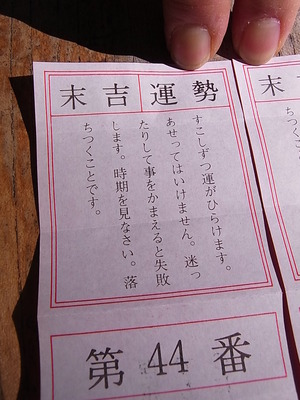 運勢
末吉
すこしずつ運がひらけます。
あせってはいけません。迷っ
たりして事をかまえると失敗
します。時期を見なさい。落
ちつくことです。
第44番
末
ちつくこ